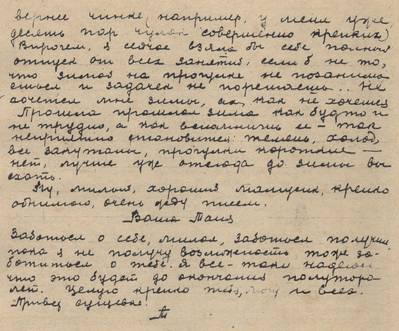 вернее чинке (например, у меня уже
десять пар чулок совершенно крепких)
Впрочем, я сейчас взяла бы себе полный
отпуск от всех занятий, если б не то,
что зимой на прогулке не позанима
ешься и задачек не порешаешь... Не
хочется мне зимы, ах, как не хочется
Прошла прошлая зима как будто и
не трудно, а как вспомнишь её — так
неприятно становится: темень, холод,
все закутаны, прогулки короткие —
нет, лучше уже отсюда до зимы вы
ехать.
Ну, милый, хороший мамусик, крепко
обнимаю, очень жду писем.
Ваша Таня
Заботься о себе, милая, заботься получше
пока я не получу возможность тоже за-
ботиться о тебе. Я все-таки надеюсь
что это будет до окончания полутора
лет. Целую крепко тебя, и всех.
Привет
Т